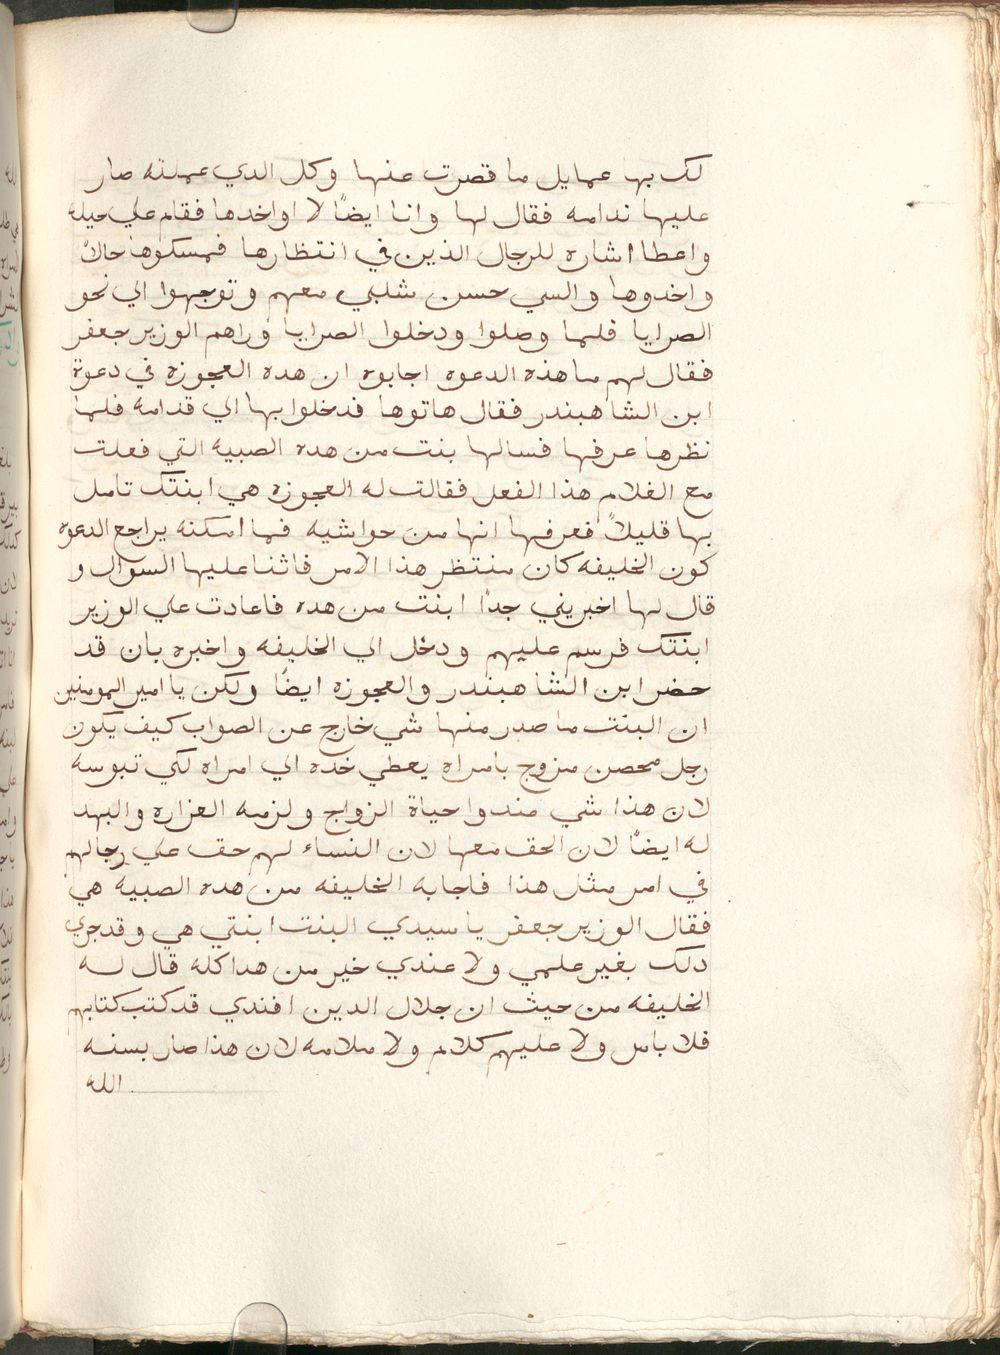 لك بها عمايل ما قصرت عنها وكل الدي عملته صار
عليها ندامه فقال لها وانا ايضًا لا اواخدها فقام علي حيله
واعطا اشاره للرجال الذين في انتظارها فمسكوها حالاً
واخدوها والسي حسن شلبي معهم وتوجهوا الي نحو
الصرايا فلما وصلوا ودخلوا الصرايا وراهم الوزير جعفر
فقال لهم ما هذه الدعوه اجابوه ان هده العجوزه في دعوة
ابن الشاهبندر فقال هاتوها فدخلوا بها الي قدامه فلما
نظرها عرفها فسالها بنت من هده الصبيه التي فعلت
مع الغلام هذا الفعل فقالت له العجوزه هي ابنتك تامل
بها قليلاً فعرفها انها من حواشيه فما امكنه يراجع الدعوه
كون الخليفه كان منتظر هذا الامر فاثنا عليها السوال و
قال لها اخبريني جدًا ابنت من هده فاعادت علي الوزير
ابنتك فرسم عليهم ودخل الي الخليفه واخبره بان قد
حضر ابن الشاهبندر والعجوزه ايضًا ولكن يا امير المومنين
ان البنت ما صدر منها شي خارج عن الصواب كيف يكون
رجل محصن مزوج بامراه يعطي خده الي امراه لكي تبوسه
لان هذا شي مندوا حياة الزواج ولزمه العزاره والبهد
له ايضًا لان الحق معها لان النساء لهم حق علي رجالهم
في امر مثل هذا فاجابه الخليفه من هده الصبيه هي
فقال الوزير جعفر يا سيدي البنت ابنتي هي وقد جري
دلك بغير علمي ولا عندي خير من هدا كله قال له
الخليفه من حيث ان جلال الدين افندي قد كتب كتابهم
فلا باس ولا عليهم كلام ولا ملامه لان هذا صار بسنه
الله